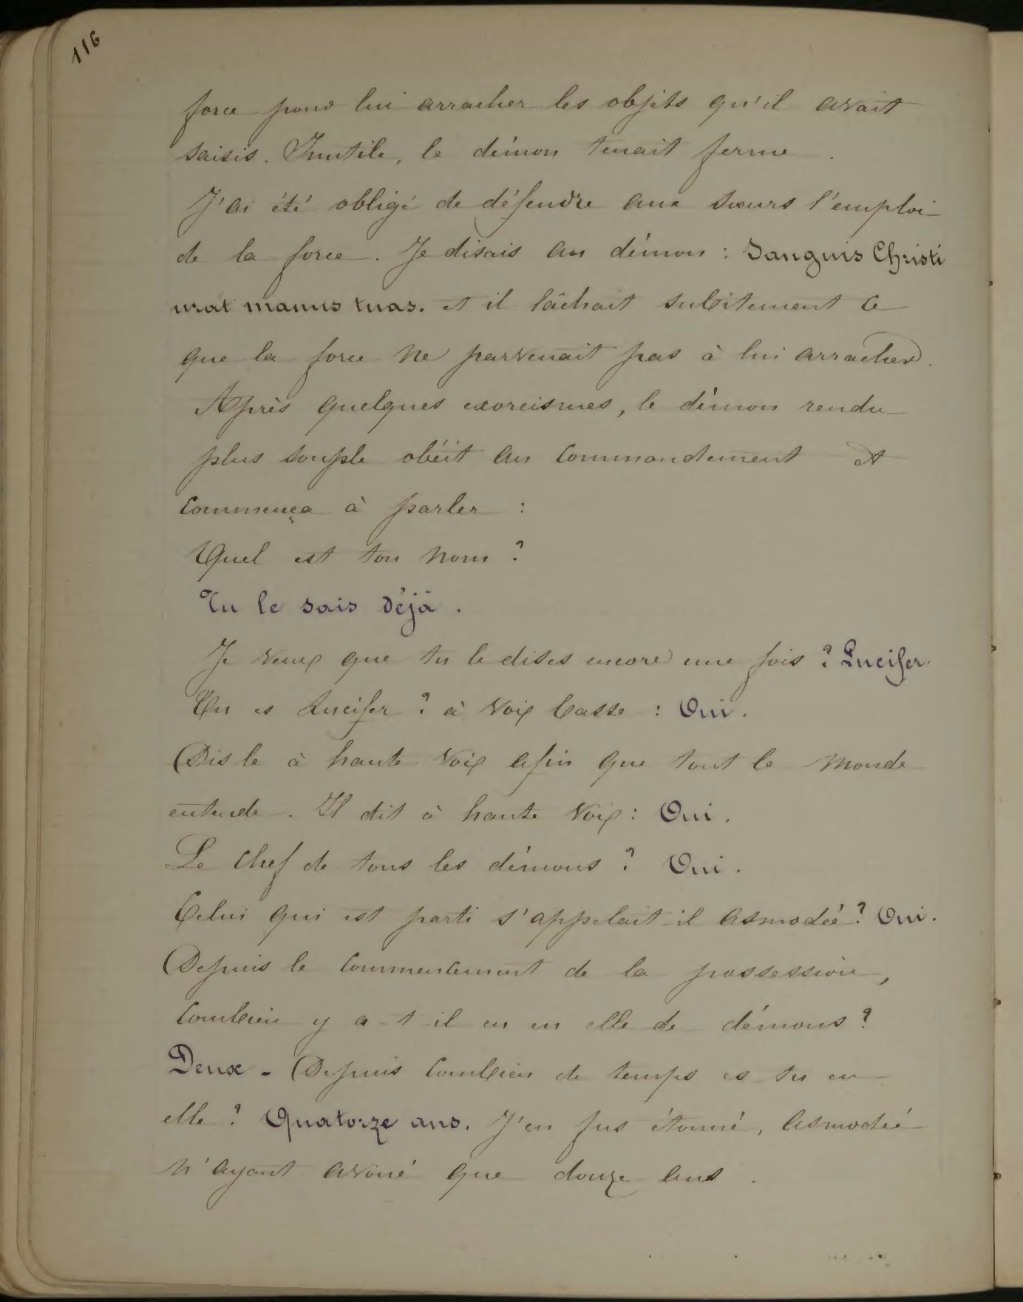 116
force pour lui arracher les objets qu'il avait
saisis. Inutile, le démon tenait ferme.
J'ai été obligé de défendre aux sœurs l'emploi
de la force. Je disais au démon : Sanguis Christi
urat manus tuas. et il lâchait subitement ce
que la force ne parvenait pas à lui arracher.
Après quelques exorcismes, le démon rendu
plus souple obéit au commandement et
commença à parler :
Quel est ton nom ?
Tu le sais déjà.
Je veux que tu le dises encore une fois ? Lucifer.
Tu es Lucifer ? à voix basse : Oui.
Dis le à haute voix afin que tout le monde
entende. Il dit à haute voix : Oui.
Le chef de tous les démons ? Oui.
Celui qui est parti s'appelait-il asmodée ? Oui.
Depuis le commencement de la possession,
combien y a-t-il eu en elle de démons ?
Deux - Depuis combien de temps es-tu en
elle ? Quatorze ans. J'en fus étonné, asmodée
n'ayant avoué que douze ans.